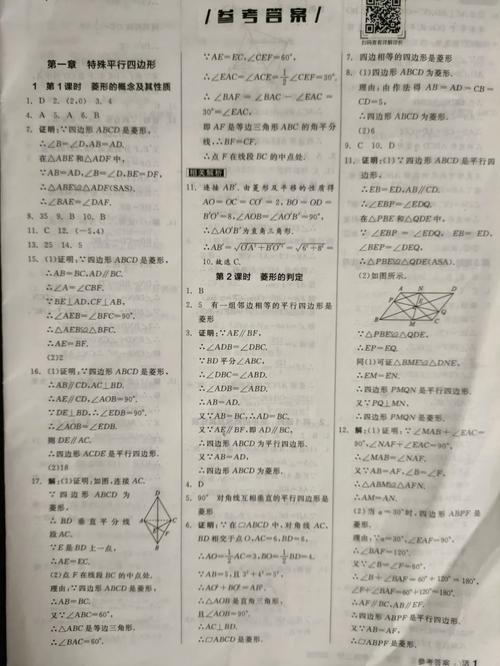 参考答案
扫码查看详解详析
第一章 特殊平行四边形
1 第1课时 菱形的概念及其性质
1. D 2. (2,0) 3. 4
4. A 5. A 6. B
7. 证明:∵四边形ABCD是菱形,
∴∠B=∠D,AB=AD.
在△ABE和△ADF中,
∵AB=AD,∠B=∠D,BE=DF,
∴△ABE≌△ADF(SAS).
∴∠BAE=∠DAF.
8. 35 9. B 10. B
11. C 12. (-5,4)
13. 25 14. 5
15. (1)证明:∵四边形ABCD是菱形,
∴AB=BC,AD∥BC.
∴∠A=∠CBF.
∵BE⊥AD,CF⊥AB,
∴∠AEB=∠BFC=90°.
∴△AEB≌△BFC.
∴AE=BF.
(2)2
16. (1)证明:∵四边形ABCD是菱形,
∴AB∥CD,AC⊥BD.
∴AE∥CD,∠AOB=90°.
∵DE⊥BD,∴∠EDB=90°.
∴∠AOB=∠EDB.
则DE∥AC.
∴四边形ACDE是平行四边形.
(2)18
17. 解:(1)证明:如图,连接AC.
∵四边形ABCD为菱形,
∴BD垂直平分线段AC.
∵E是BD上一点,
∴AE=EC.
(2)点F在线段BC的中点处.
理由:∵四边形ABCD是菱形,
∴AB=BC.
又∵∠ABC=60°,
∴△ABC是等边三角形.
∴∠BAC=60°.
∵AE=EC,∠CEF=60°,
∴∠EAC=∠ACE=1/2∠CEF=30°.
∴∠BAF=∠BAC-∠EAC=
30°=∠EAC,
即AF是等边三角形ABC的角平分
线.∴BF=CF.
∴点F在线段BC的中点处.
相关解析
11. 连接AB′,由菱形及平移的性质得
AO=OC=CO′=2,BO=OD=
B′O′=8,∠AOB=∠AO′B′=90°,
∴△AO′B′为直角三角形.
∴AB′=√(O′A²+B′O′²)=√(6²+8²)=
10.故选C.
第2课时 菱形的判定
1. B
2. 5 有一组邻边相等的平行四边形是菱形
3. 证明:∵AE∥BF,
∴∠ADB=∠DBC.
∵BD平分∠ABC,
∴∠DBC=∠ABD.
∴∠ADB=∠ABD.
∴AB=AD.
又∵AB=BC,∴AD=BC.
又∵AE∥BF,即AD∥BC,
∴四边形ABCD为平行四边形.
又∵AB=AD,
∴四边形ABCD为菱形.
4. D
5. 90° 对角线互相垂直的平行四边形是菱形
6. 证明:∵在▱ABCD中,对角线AC,
BD相交于点O,AC=6,BD=8,
∴AO=1/2AC=3,BO=1/2BD=4.
∵AB=5,且3²+4²=5²,
∴AO²+BO²=AB².
∴△AOB是直角三角形,
且∠AOB=90°.
∴AC⊥BD.
∴▱ABCD是菱形.
7. 四边相等的四边形是菱形
8. (1)四边形ABCD为菱形.
理由:由作法得AB=AD=CB=
CD=5,
∴四边形ABCD为菱形.
(2)6
9. C 10. D
11. 证明:(1)∵四边形ABCD为平行四边形,
∴EB=ED,AB∥CD.
∴∠EBP=∠EDQ.
在△PBE和△QDE中,
∵∠EBP=∠EDQ,EB=ED,
∠BEP=∠DEQ,
∴△PBE≌△QDE(ASA).
(2)如图所示.
∵△PBE≌△QDE,
∴EP=EQ.
同(1)可证△BME≌△DNE,
∴EM=EN.
∴四边形PMQN是平行四边形.
又∵PQ⊥MN,
∴四边形PMQN是菱形.
12. 解:(1)证明:∵∠MAB+∠EAC=
90°,∠NAF+∠EAC=90°,
∴∠MAB=∠NAF.
又∵AB=AF,∠B=∠F,
∴△ABM≌△AFN.
∴AM=AN.
(2)当α=30°时,四边形ABPF是菱形.
理由:∵α=30°,∠EAF=90°,
∴∠BAF=120°.
又∵∠B=∠F=60°,
∴∠B+∠BAF=60°+120°=180°,
∠F+∠BAF=60°+120°=180°.
∴AF∥BC,AB∥EF.
∴四边形ABPF是平行四边形.
又∵AB=AF,
∴四边形ABPF是菱形.
参考答案 1